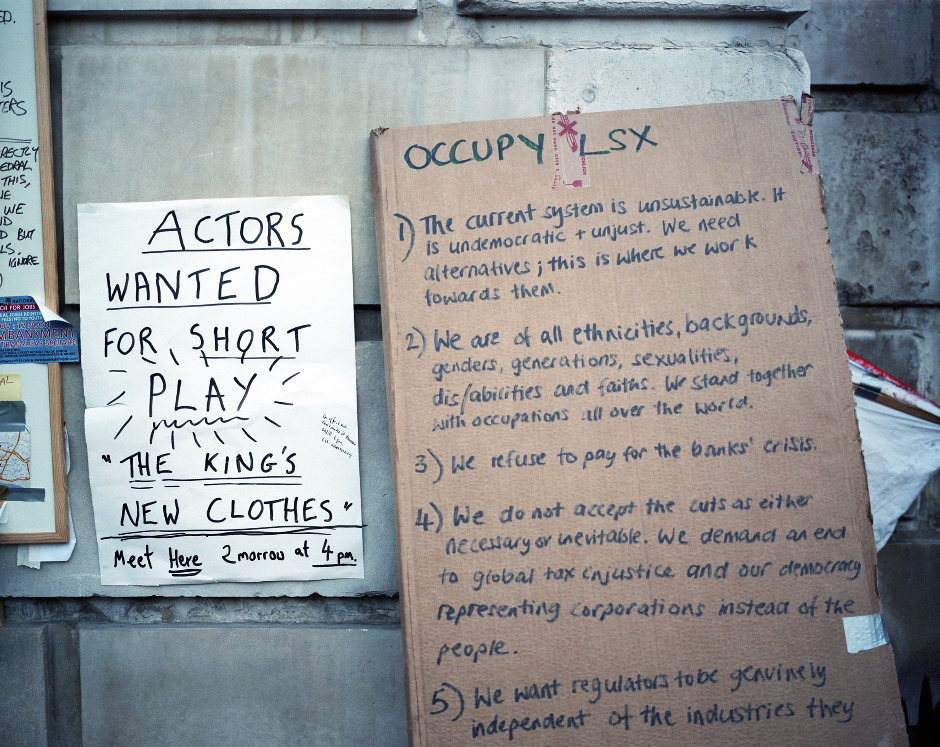 ED.
IS
TERS
RECTLY
EDRAL
THIS,
WE
D BUT
LS.
IGNORE
CH FOR JOBS
MBANKMENT
AL
ACTORS
WANTED
FOR SHORT
PLAY
"THE KING'S
NEW CLOTHES"
Meet Here 2morrow at 4pm.
OCCUPY LSX
1) The current system is unsustainable. It
is undemocratic + unjust. We need
alternatives; this is where we work
towards them.
2) We are of all ethnicities, backgrounds,
genders, generations, sexualities,
dis/abilities and faiths. We stand together
with occupations all over the world.
3) We refuse to pay for the banks' crisis.
4) We do not accept the cuts as either
necessary or inevitable. We demand an end
to global tax injustice and our democracy
representing corporations instead of the
people.
5) We want regulators to be genuinely
independent of the industries they